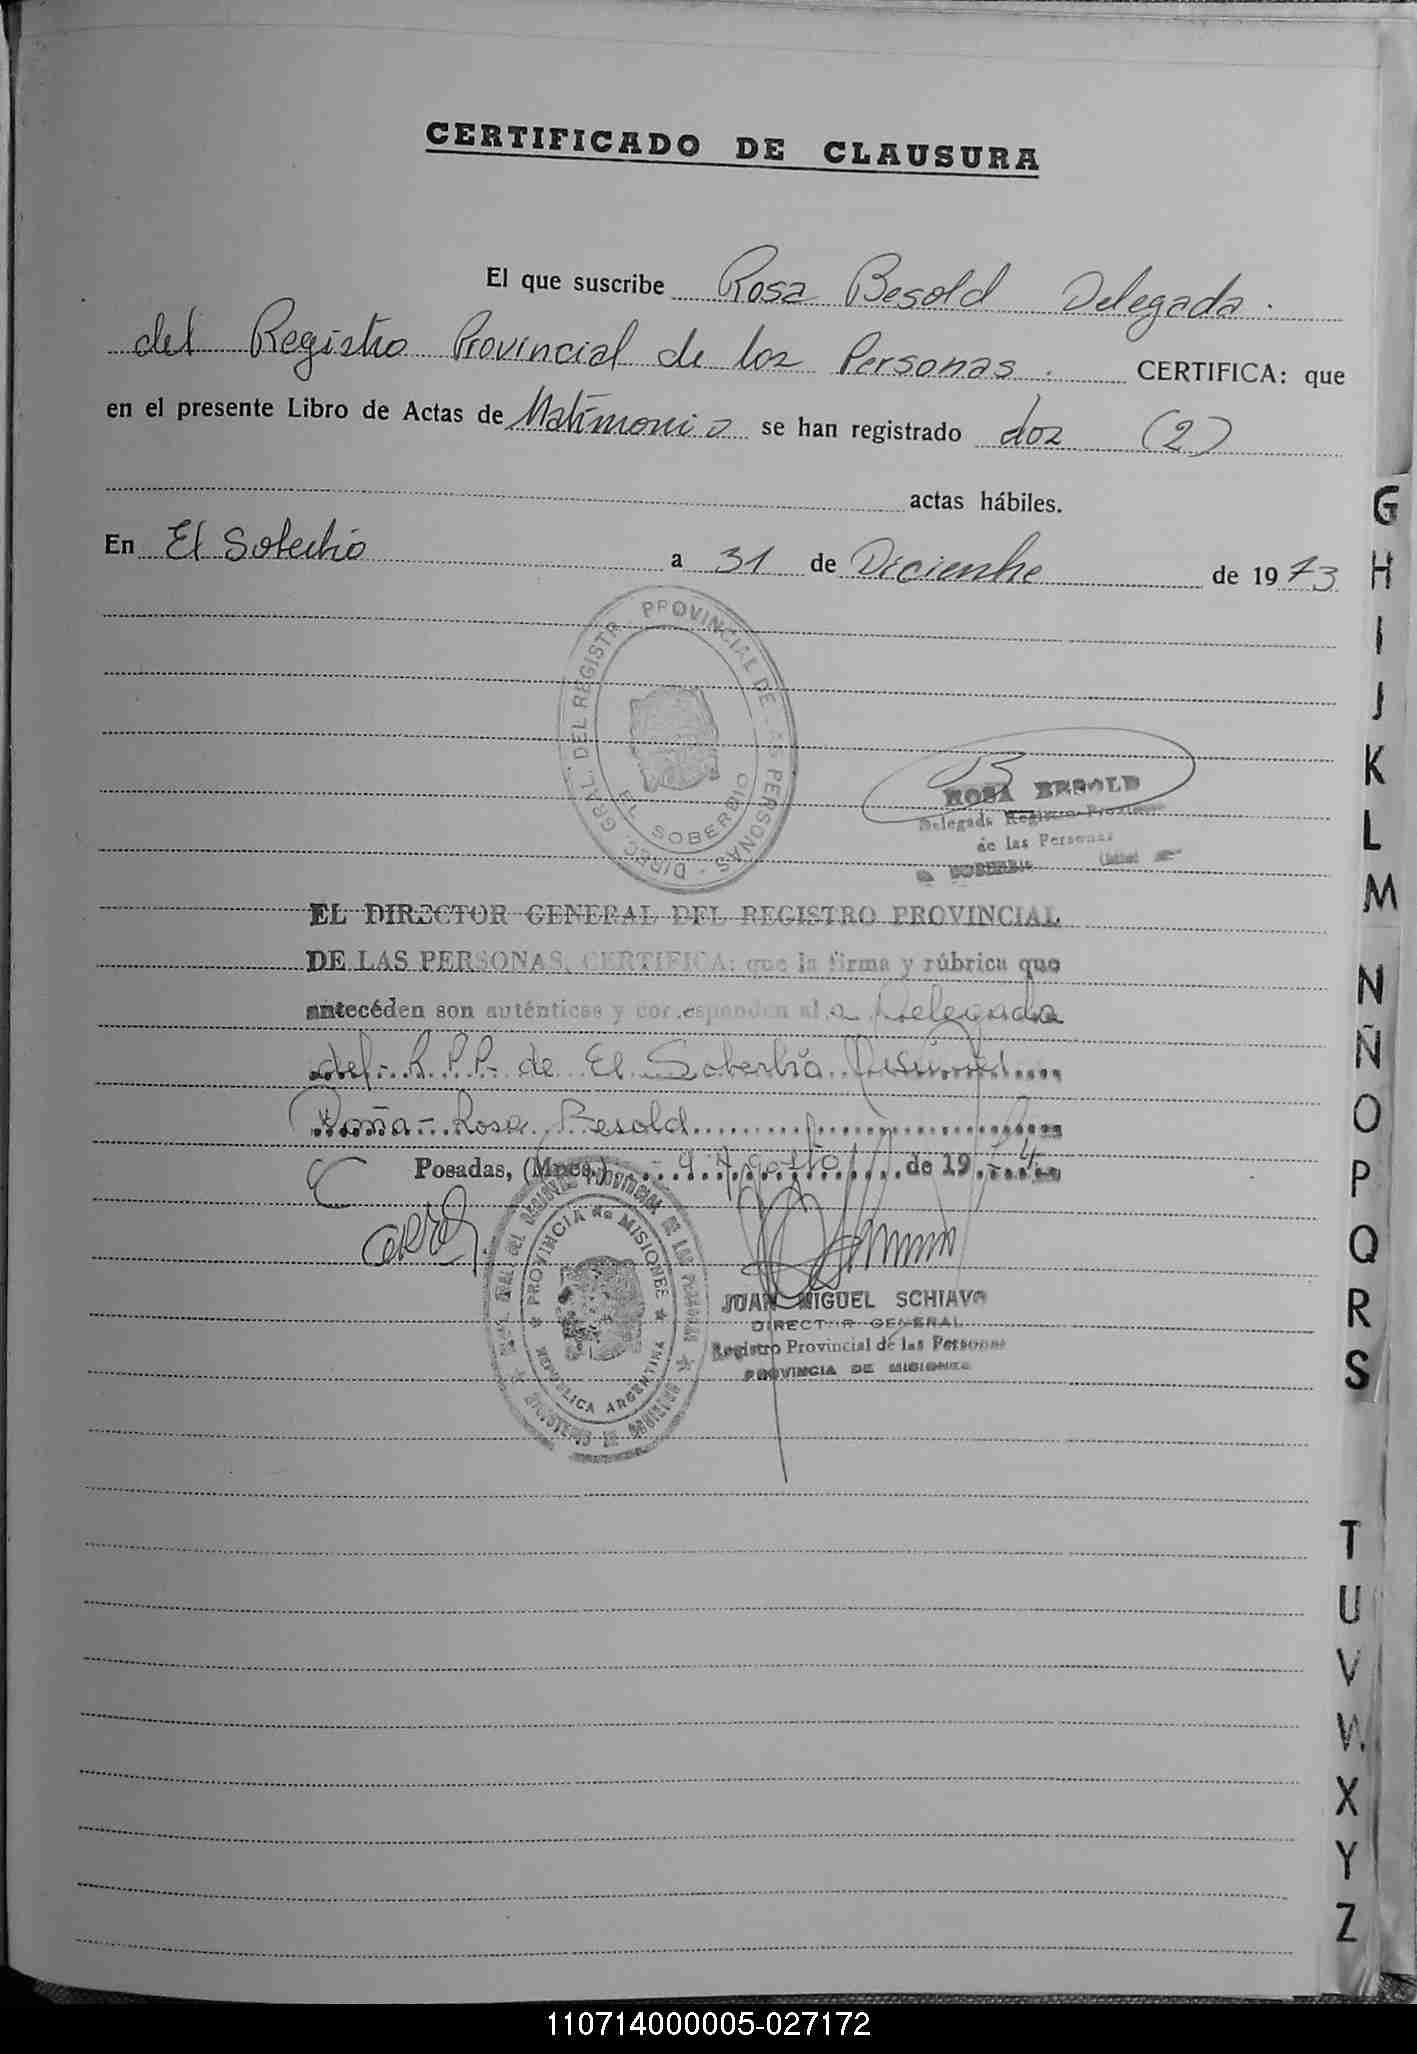 CERTIFICADO DE CLAUSURA
El que suscribe Rosa Besold Delegada.
del Registro Provincial de las Personas. CERTIFICA: que
en el presente Libro de Actas de Matrimonio se han registrado dos (2)
actas hábiles.
En El Soberbio a 31 de Diciembre de 1973
DIREC. GRAL. DEL REGISTR PROVINCIAL DE LAS PERSONAS -
EL SOBERBIO
ROSA BESOLD
Delegada Registro Provincial
de las Personas
SOBERBIO
EL DIRECTOR GENERAL DEL REGISTRO PROVINCIAL
DE LAS PERSONAS, CERTIFICA: que la firma y rúbrica que
antecéden son auténticas y corresponden al a Delegada
del R.P.P. de El Soberbio Misiones
Doña Rosa Besold
Posadas, (Mnes.) 9 Agosto de 1974
PROVINCIA de MISIONES
REPUBLICA ARGENTINA
JUAN MIGUEL SCHIAVO
DIRECTOR GENERAL
Registro Provincial de las Personas
PROVINCIA DE MISIONES
G
H
I
J
K
L
M
N
Ñ
O
P
Q
R
S
T
U
V
W
X
Y
Z
110714000005-027172